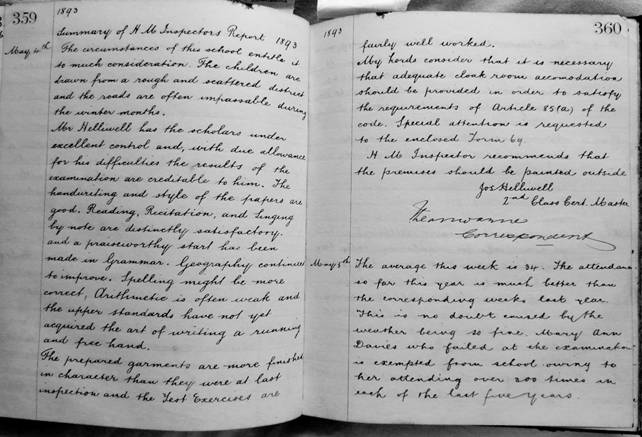 359
1893
Summary of H M Inspectors Report 1893
May 4th
The circumstances of this school entitle it
to much consideration. The children are
drawn from a rough and scattered district
and the roads are often impassable during
the winter months.
Mr Helliwell has the scholars under
excellent control and, with due allowance
for his difficulties the results of the
examination are creditable to him. The
handwriting and style of the papers are
good. Reading, Recitation, and Singing
by note are distinctly satisfactory.
and a praiseworthy start has been
made in Grammar. Geography continues
to improve. Spelling might be more
correct, Arithmetic is often weak and
the upper standards have not yet
acquired the art of writing a running
and free hand.
The prepared garments are more finished
in character than they were at last
inspection and the Test Exercises are
360
1893
fairly well worked.
My Lords consider that it is necessary
that adequate cloak room accomodation
should be provided in order to satisfy
the requirements of Article 85(a) of the
code. Special attention is requested
to the enclosed Form 69.
H M Inspector recommends that
the premises should be painted outside
Jos Helliwell
2nd Class Cert. Master
Correspondent
May 5th
The average this week is 34. The attendance
so far this year is much better than
the corresponding weeks last year.
This is no doubt caused by the
weather being so fine. Mary Ann
Davies who failed at the examination
is exempted from school owing to
her attending over 200 times in
each of the last five years.